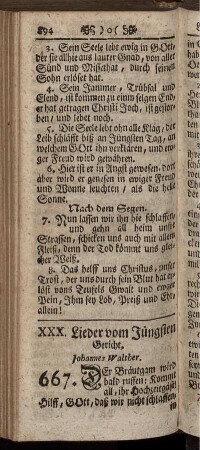 894
3. Sein Seele lebt ewig in GOtt,
der sie allhie aus lauter Gnad, von aller
Sünd und Missethat, durch seinen
Sohn erlöset hat.
4. Sein Jammer, Trübsal und
Elend, ist kommen zu einm selgen End,
er hat getragen Christi Joch, ist gestor-
ben, und lebet noch.
5. Die Seele lebt ohn alle Klag, der
Leib schläfft biß an Jüngsten Tag, an
welchem GOtt ihn verklären, und ew-
ger Freud wird gewähren.
6. Hier ist er in Angst gewesen, dort
aber wird er genesen in ewiger Freud
und Wonne leuchten, als die helle
Sonne.
Nach dem Segen.
7. Nun lassen wir ihn hie schlaffen,
und gehn all heim unser
Strassen, schicken uns auch mit allem
Fleiß, denn der Tod kömmt uns glei-
cher Weiß.
8. Das helff uns Christus, unser
Trost, der uns durch sein Blut hat er-
löst vons Teufels Gwalt und ewger
Pein, Ihm sey Lob, Preiß und Ehr
allein!
XXX. Lieder vom Jüngsten
Gericht.
Johannes Walther.
667. DEr Bräutgam wird
bald ruffen: Kommt
all, ihr Hochzeitgäst!
Hilff, GOtt, daß wir nicht schlaffen,